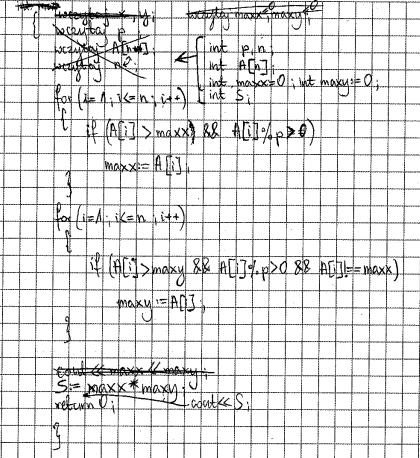 {
wczytaj x, y; wczytaj maxx=0, maxy=0;
wczytaj p
wczytaj A[n];
wczytaj n;
int p, n;
int A[n];
int maxx=0; int maxy:=0;
int S;
for (i=1; i<=n; i++)
{
if (A[i] > maxx) && A[i]%p>0)
maxx:= A[i];
}
for (i=1; i<=n; i++)
{
if (A[i] > maxy && A[i]%p>0 && A[i]!==maxx)
maxy:=A[i];
}
cout << maxx << maxy;
S:= maxx * maxy;
return 0; cout<<S;
}